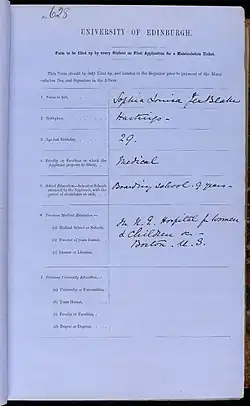 No. 628
UNIVERSITY OF EDINBURGH.
Form to be filled up by every Student on First Application for a Matriculation Ticket.
This Form should be duly filled up, and handed to the Registrar prior to payment of the Matriculation Fee, and Signature in the Album.
1. Name in full, Sophia Louisa Jex-Blake
2. Birthplace, Hastings -
3. Age last Birthday, 29.
4. Faculty or Faculties in which the Applicant proposes to Study, Medical
5. School Education—School or Schools attended by the Applicant, with the period of attendance at each, Boarding school. 9 years -
6. Previous Medical Education—
(a) Medical School or Schools, In N. E. Hospital for Women
(b) Number of years thereat, & Children
(c) License or Licenses, Boston. U.S.
7. Previous University Education,—
(a) University or Universities,
(b) Years thereat,
(c) Faculty or Faculties,
(d) Degree or Degrees,